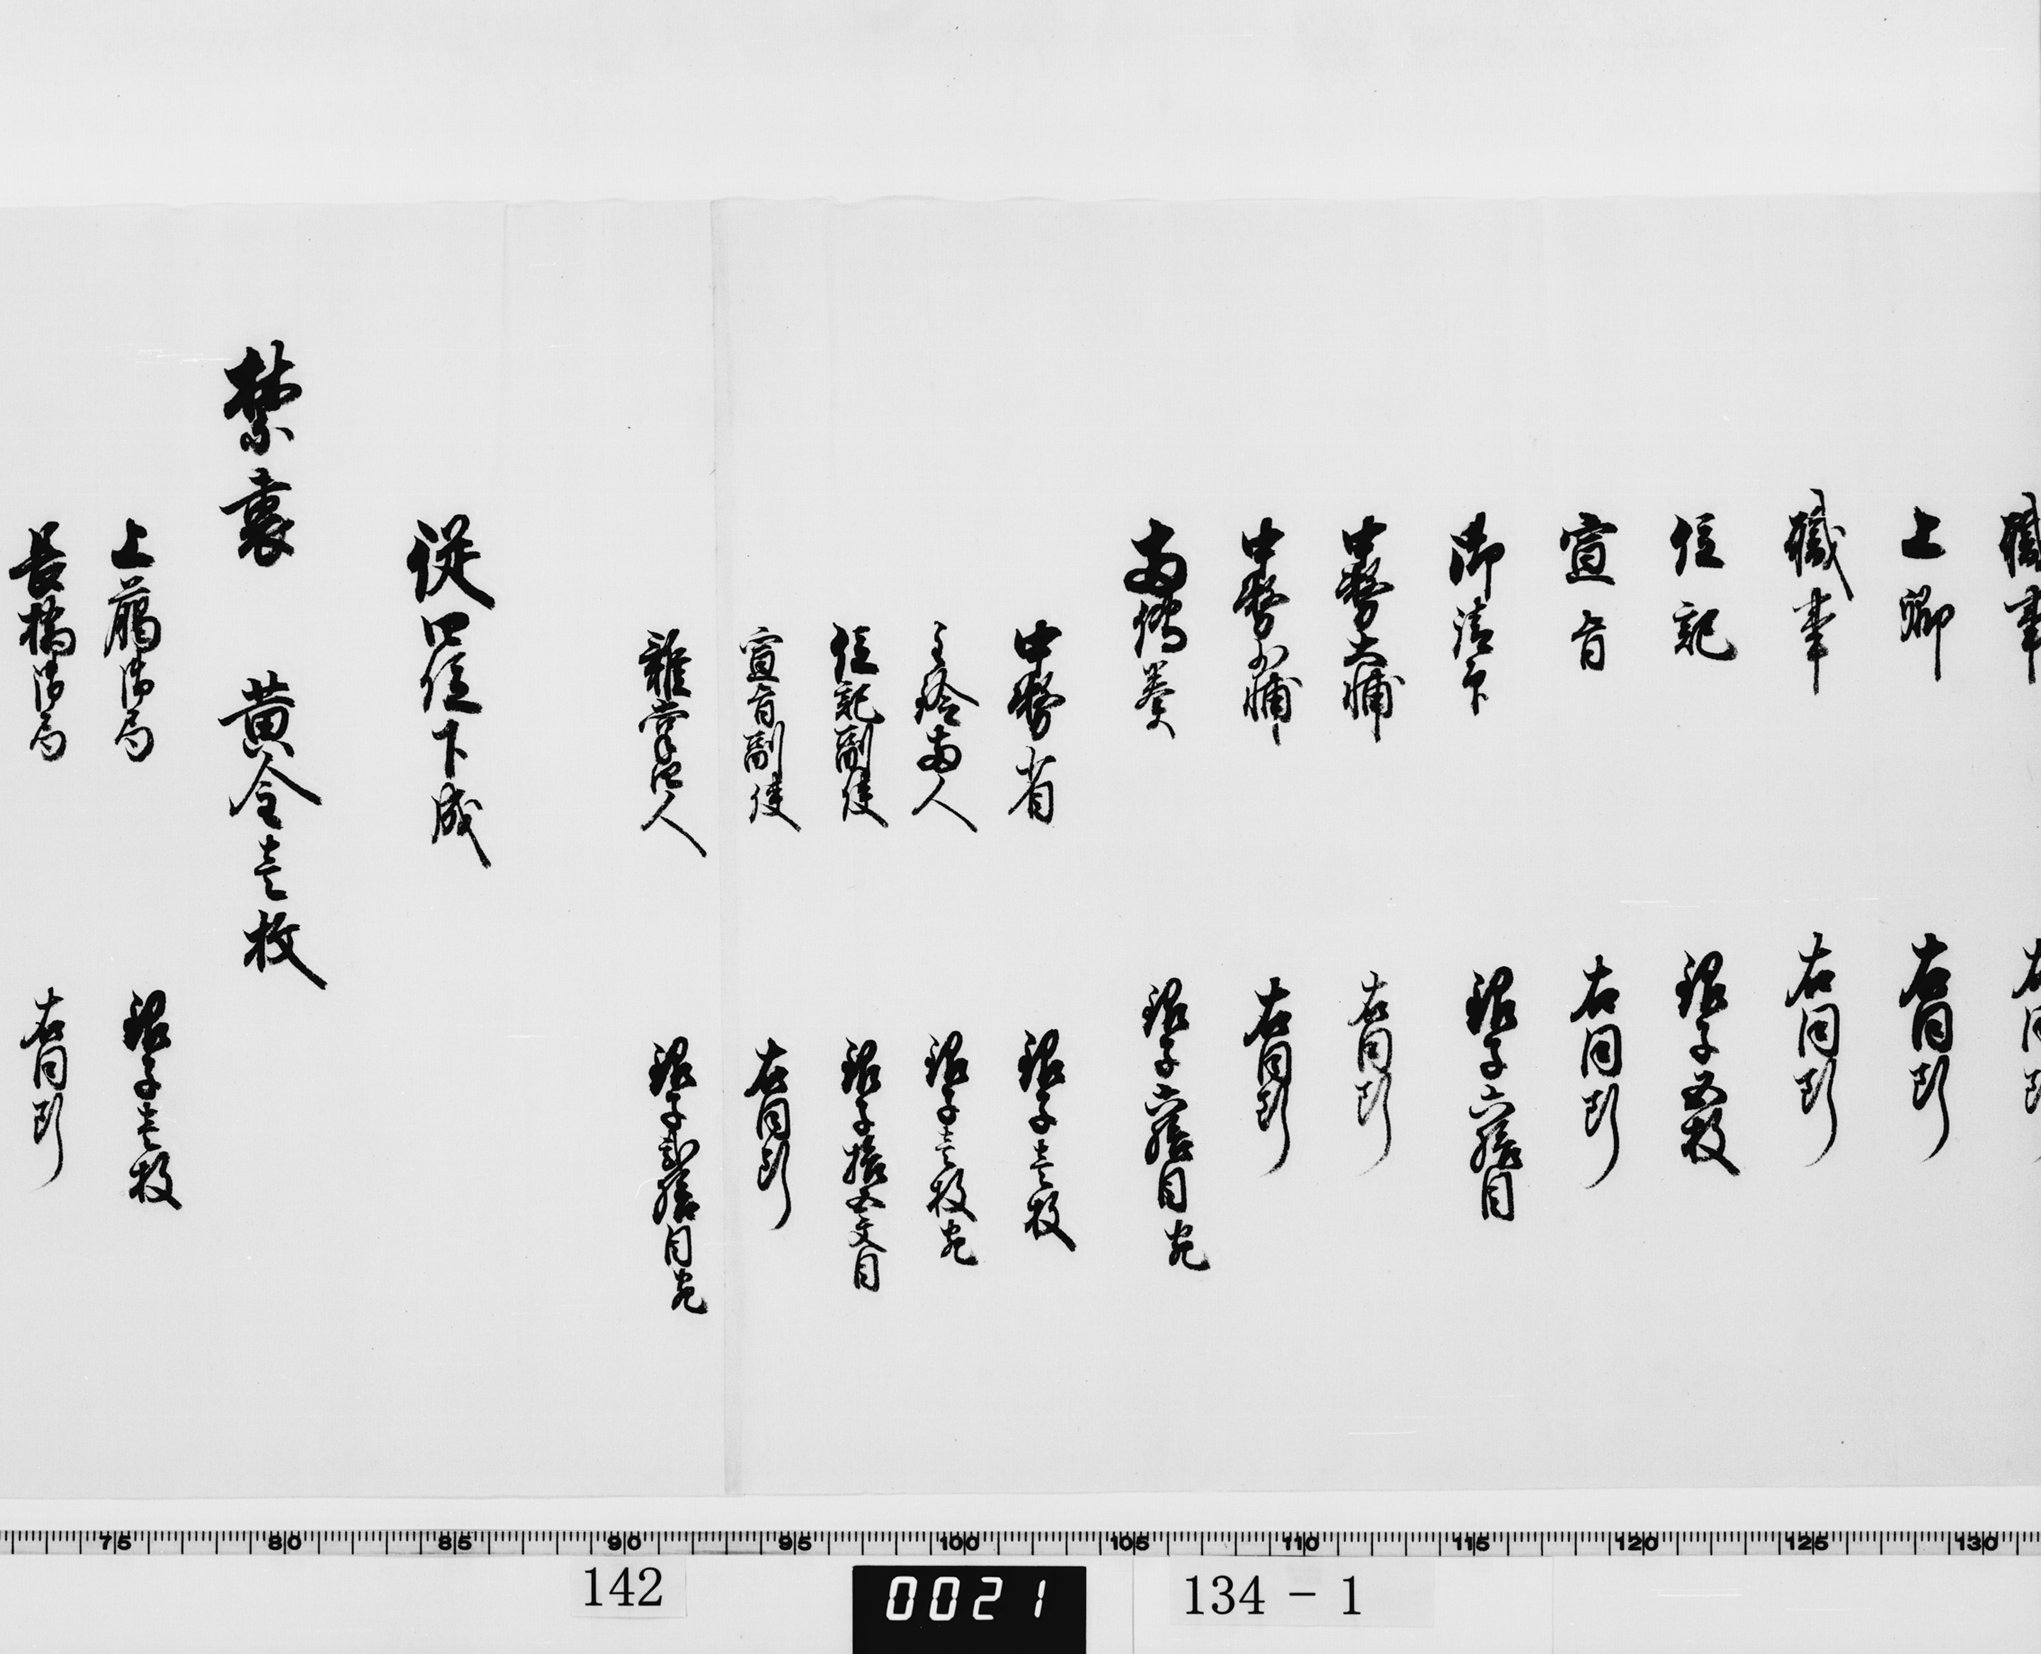 職事　右同断
上卿　右同断
職事　右同断
位記　銀子五枚
宣旨　右同断
御清所　銀子六拾目
中務大輔　右同断
中務少輔　右同断
両傳奏　銀子六拾目宛
中務省　銀子壱枚
主鈴両人　銀子壱枚宛
位記副使　銀子拾五文目
宣旨副使　右同断
雑掌四人　銀子弐拾目宛
従四位下成
禁裏　黄金壱枚
上臈御局　銀子壱枚
長橋御局　右同断
75 80 85 90 95 100 105 110 115 120 125 130
142
0021
134-1